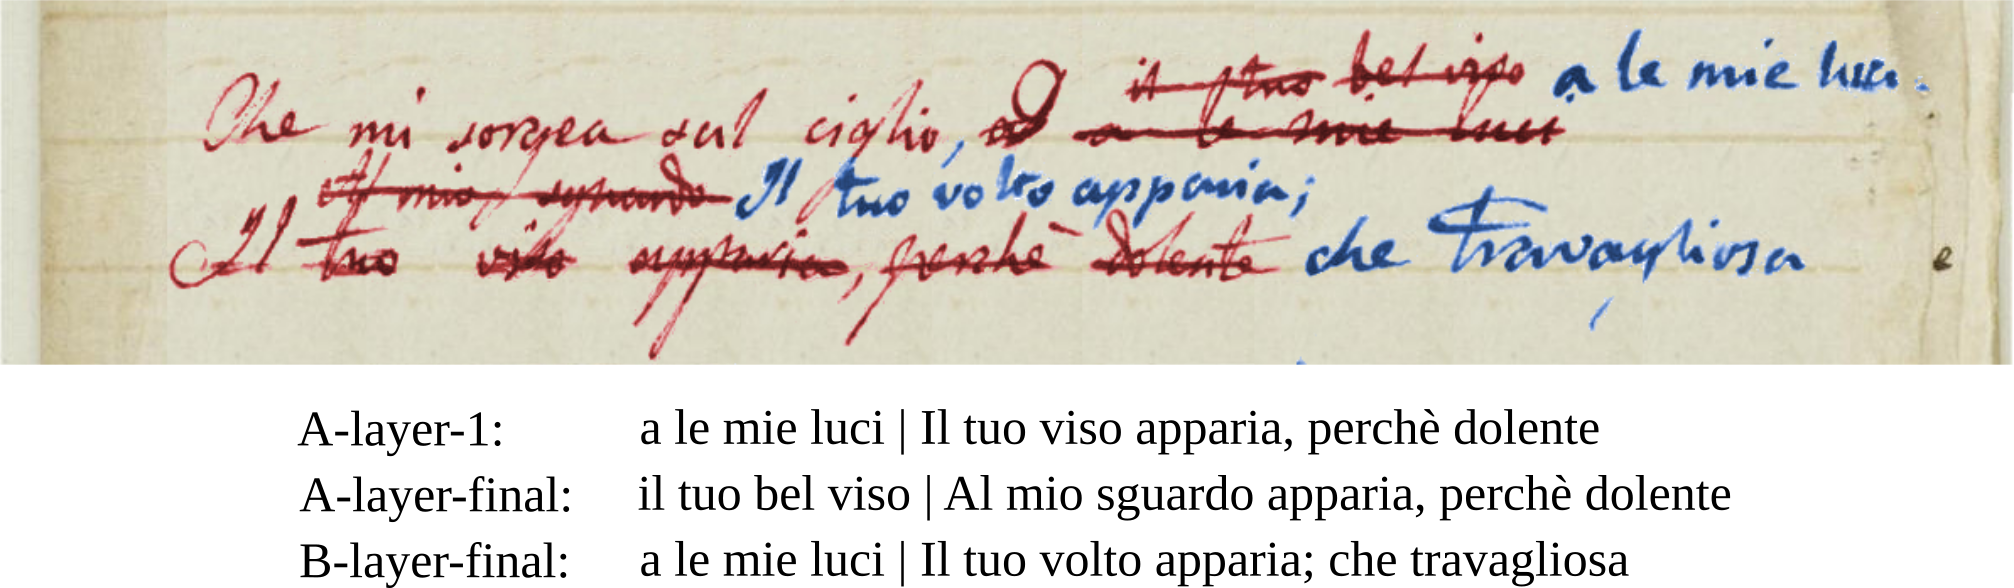 il tuo bel viso a le mie luci.
Che mi sorgea sul ciglio, a le mie luci
Al mio sguardo Il tuo volto apparia;
Il tuo viso apparia, perchè dolente che travagliosa
e
A-layer-1: a le mie luci | Il tuo viso apparia, perchè dolente
A-layer-final: il tuo bel viso | Al mio sguardo apparia, perchè dolente
B-layer-final: a le mie luci | Il tuo volto apparia; che travagliosa